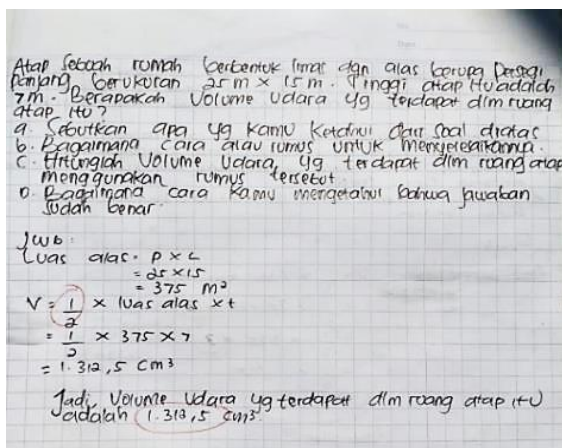 Atap Sebuah rumah berbentuk limas dgn alas berupa Persegi
Panjang berukuran 25 m x 15 m. Tinggi atap itu adalah
7m. Berapakah Volume Udara yg terdapat dlm ruang
atap itu?
a. Sebutkan apa yg kamu Ketahui dari Soal diatas
b. Bagaimana cara atau rumus untuk menyelesaikannya.
c. Hitunglah Volume Udara, yg terdapat dlm ruang atap
menggunakan rumus tersebut
D. Bagaimana cara kamu mengetahui bahwa jawaban
sudah benar.
Jwb:
Luas alas = P x L
= 25 x 15
= 375 m²
V = 1/2 x luas alas x t
= 1/2 x 375 x 7
= 1.312,5 cm³
Jadi, Volume Udara yg terdapat dlm ruang atap itu
adalah 1.313,5 cm³